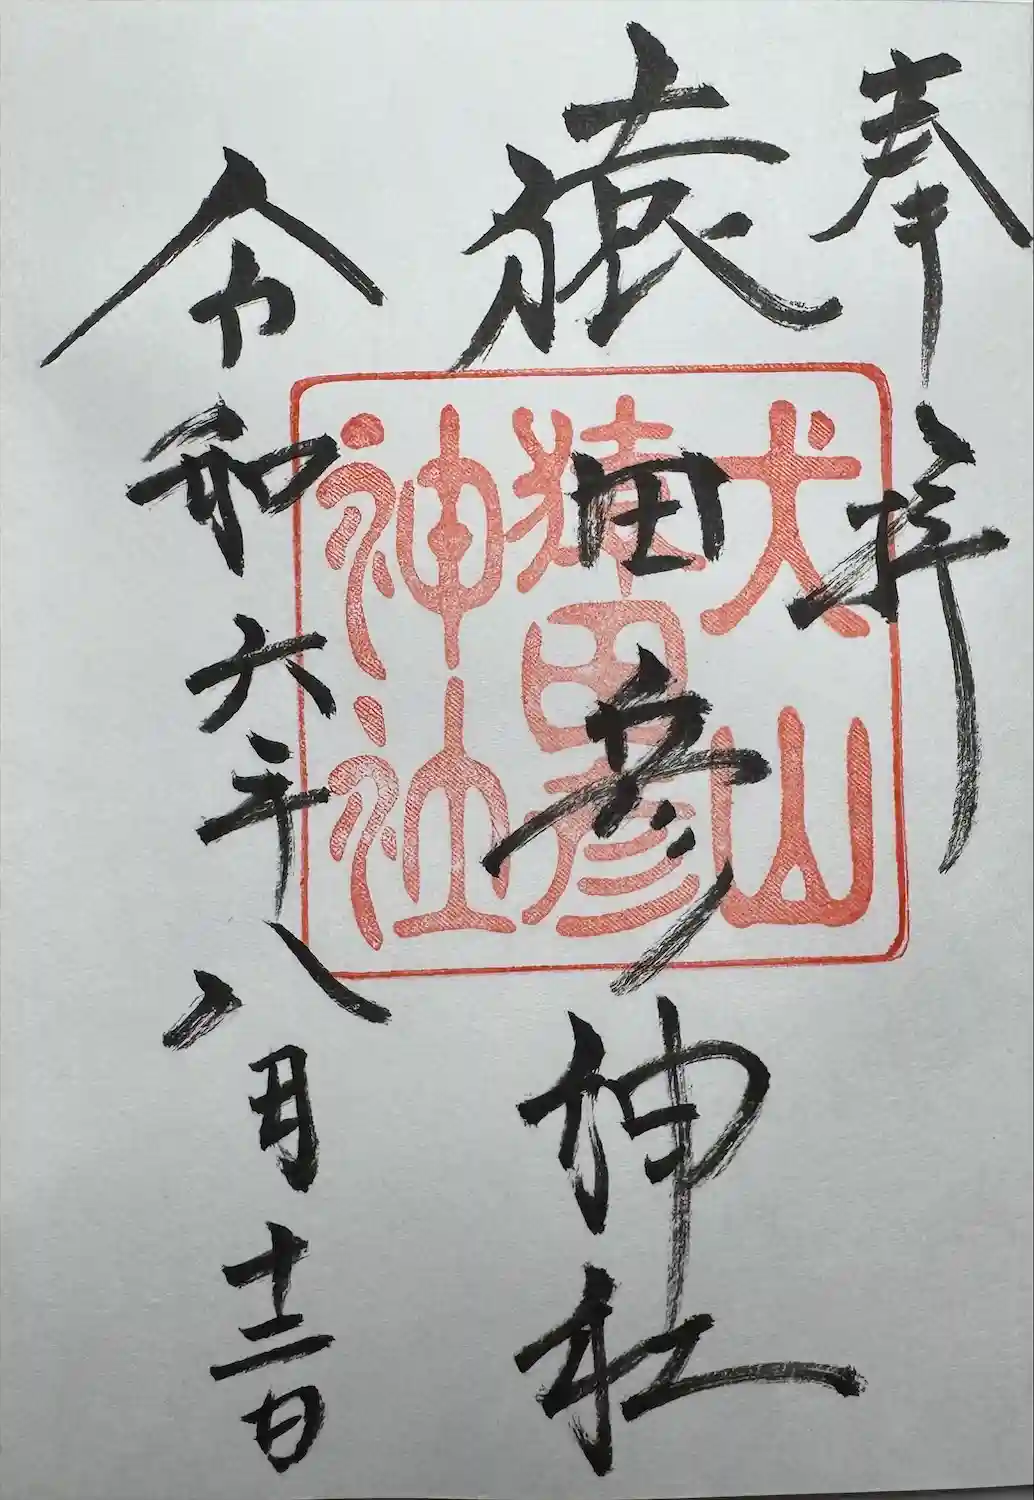 奉拝
猿田彦神社
令和六年八月十二日
犬山
猿田彦
神社